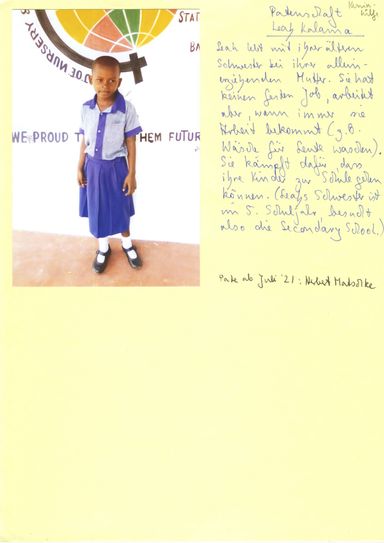 STAT
DOE NURSERY
S
BA
WE PROUD T
HEM FUTUR
Patenschaft
Leah Kalama
Leah lebt mit ihrer älteren
Schwester bei ihrer allein-
erziehenden Mutter. Sie hat
keinen festen Job, arbeitet
aber, wenn immer sie
Arbeit bekommt (z.B.
Wäsche für Leute waschen).
Sie kämpft dafür, dass
ihre Kinder zur Schule gehen
können. (Leahs Schwester ist
im 5. Schuljahr, besucht
also die Secondary School.)
Pate ab Juli '21: Herbert